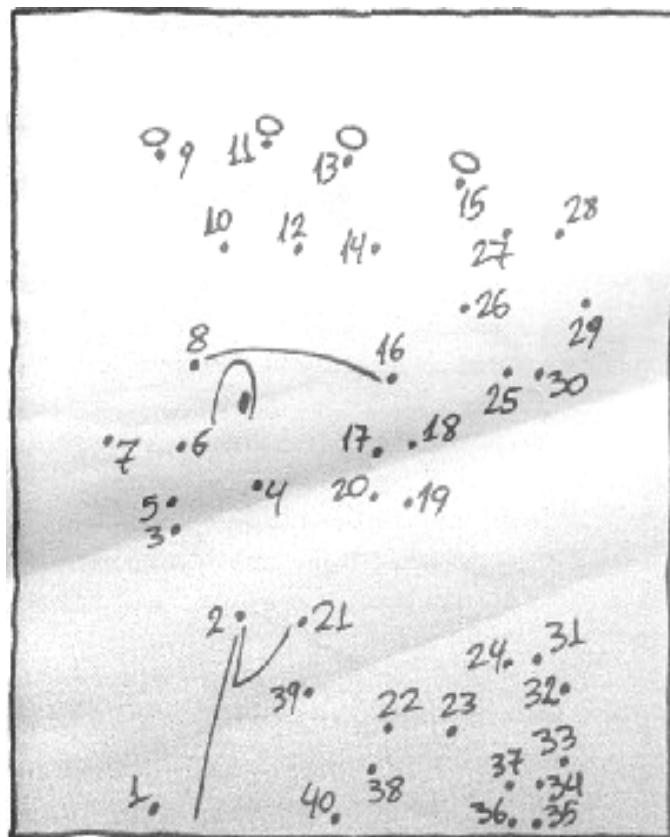 9 11 13
15 28
10 12 14 27
26
8 16 29
25 30
7 6 17 18
5 4 20 19
3
2 21
24 31
39 32
22 23
33
1 40 38 37 34
36 35